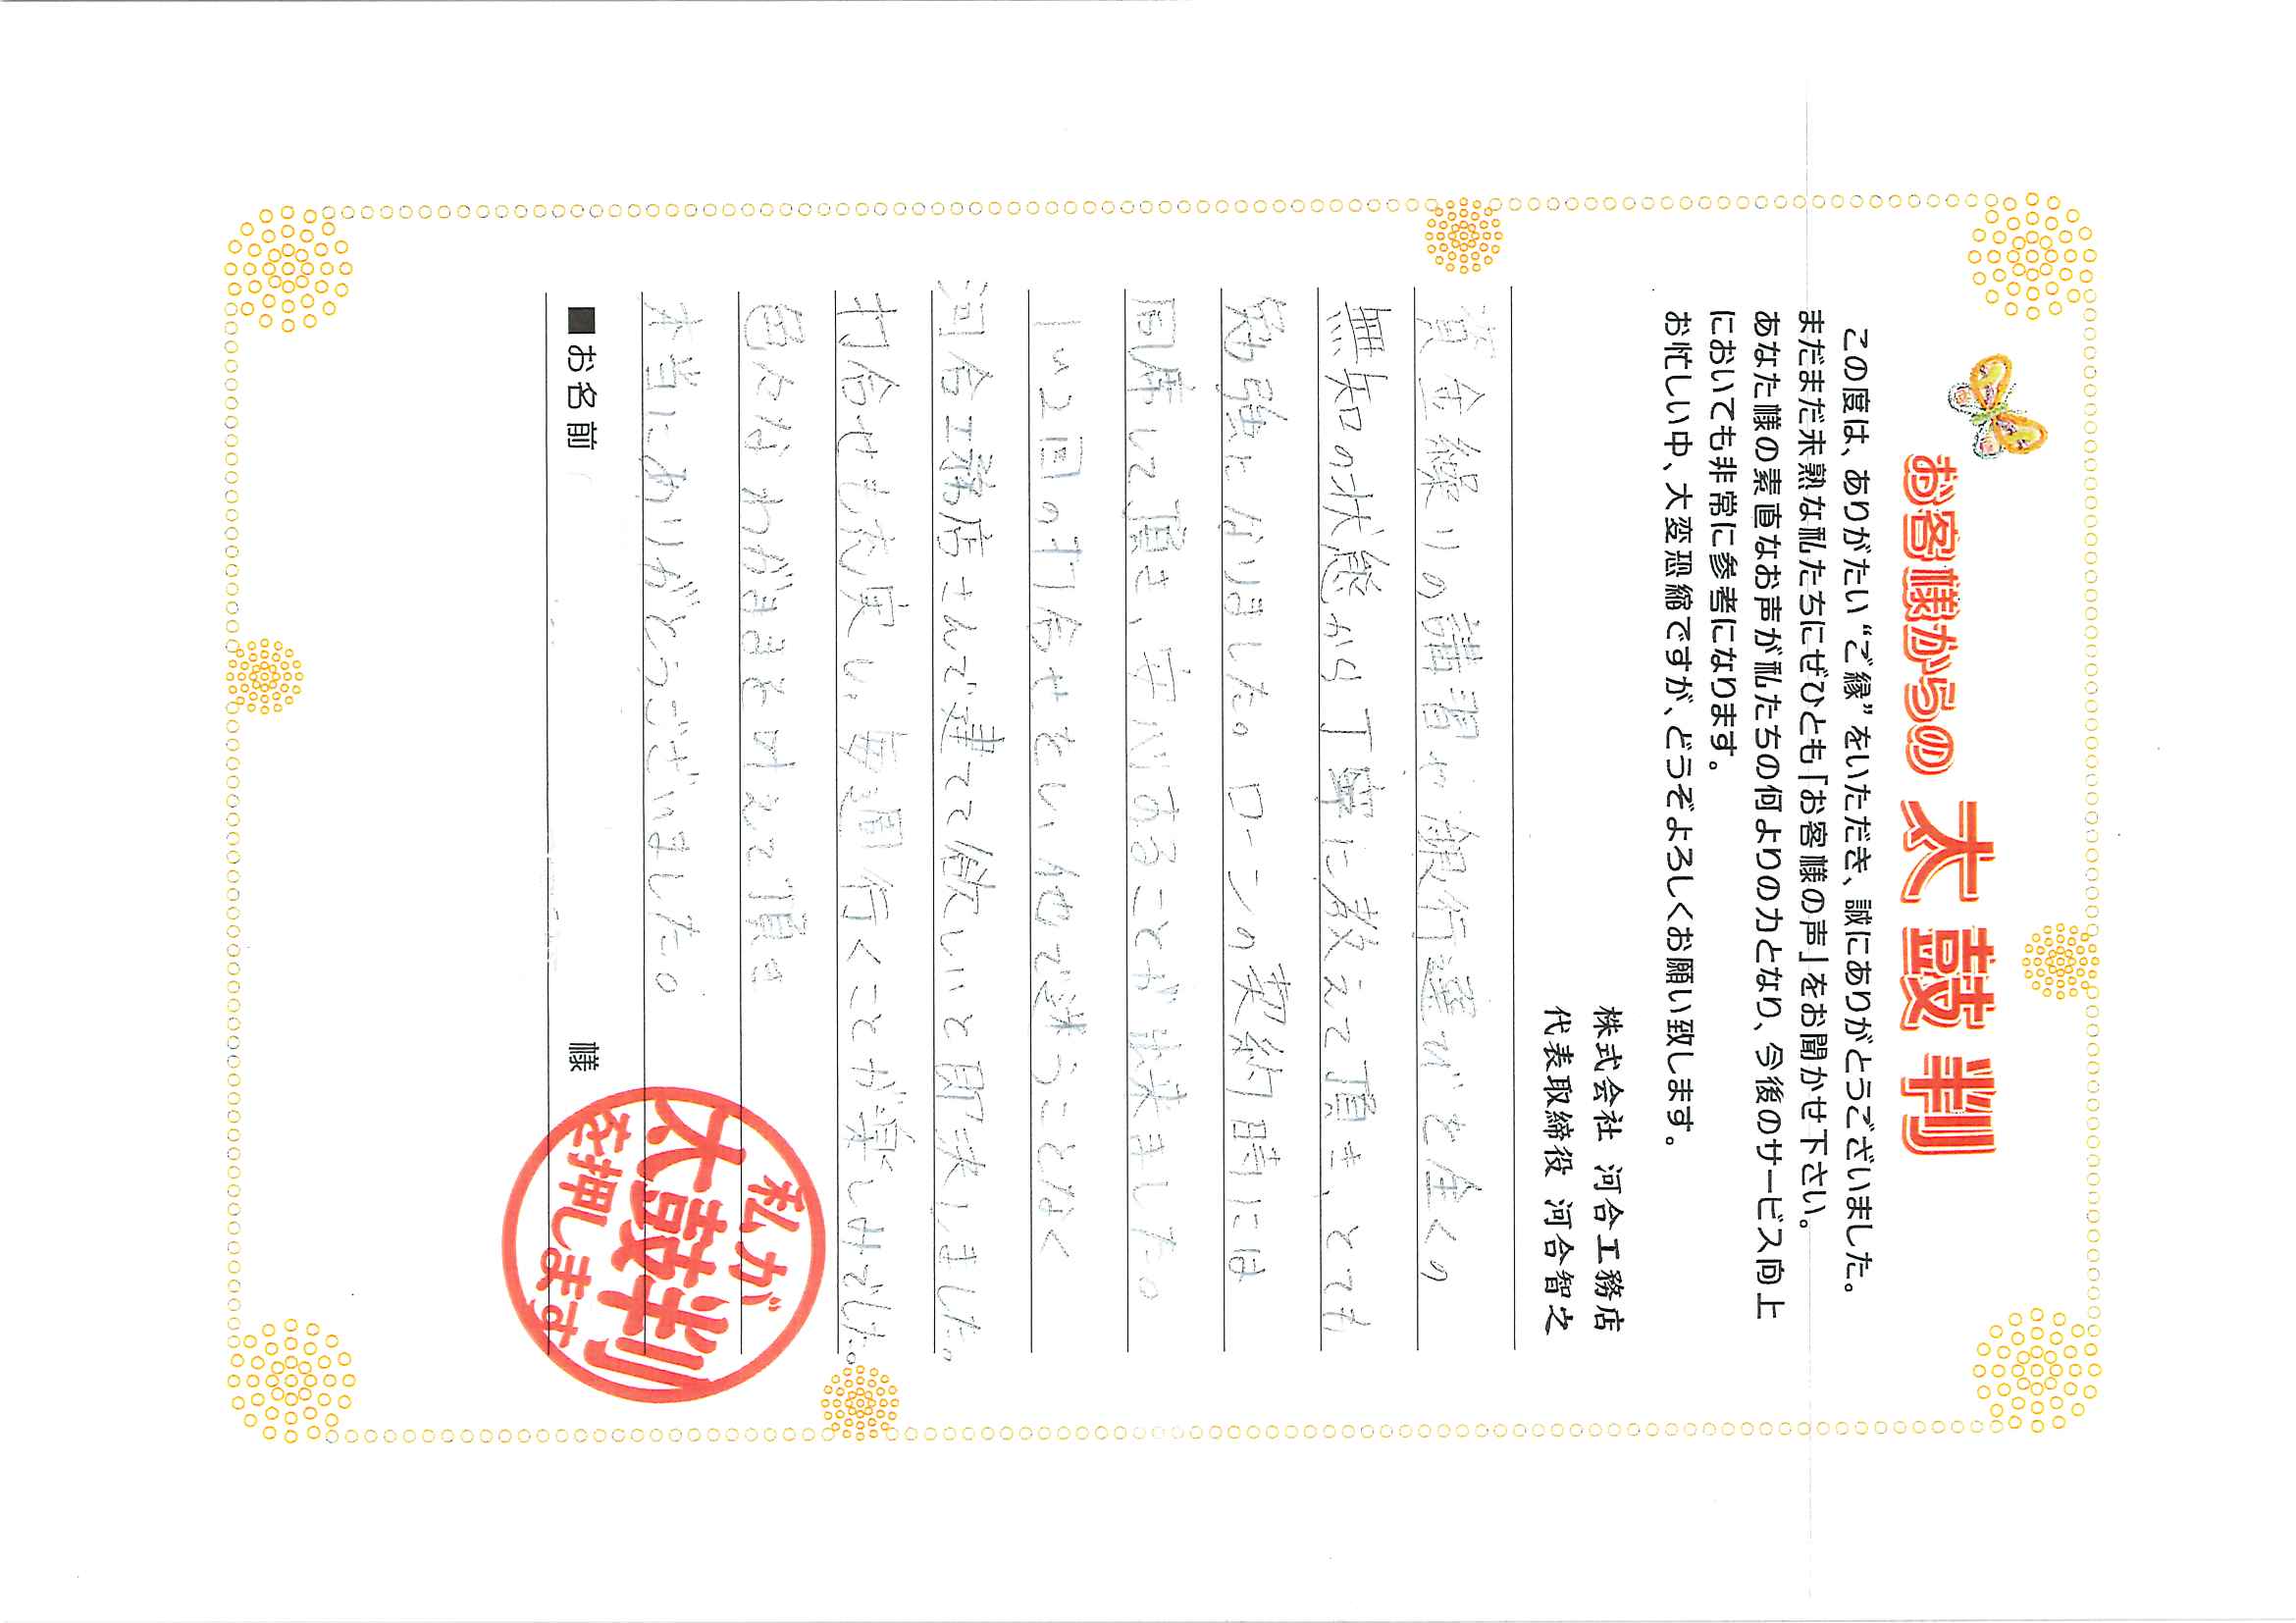 お客様からの 太鼓判
この度は、ありがたい“ご縁”をいただき、誠にありがとうございました。
まだまだ未熟な私たちにぜひとも「お客様の声」をお聞かせ下さい。
あなた様の素直なお声が私たちの何よりの力となり、今後のサービス向上
においても非常に参考になります。
お忙しい中、大変恐縮ですが、どうぞよろしくお願い致します。
株式会社 河合工務店
代表取締役 河合智之
資金繰りの講習や銀行選びを全くの
無知の状態から丁寧に教えて頂き、とても
勉強になりました。ローンの契約時には
同席して頂き、安心することが出来ました。
1〜2回の打合せをし、他で迷うことなく
河合工務店さんで建てて欲しいと即決しました。
打合せも充実し、毎週行くことが楽しみでした。
色々なわがままを叶えて頂き
本当にありがとうございました。
■お名前
様
私が
太鼓判
を押します